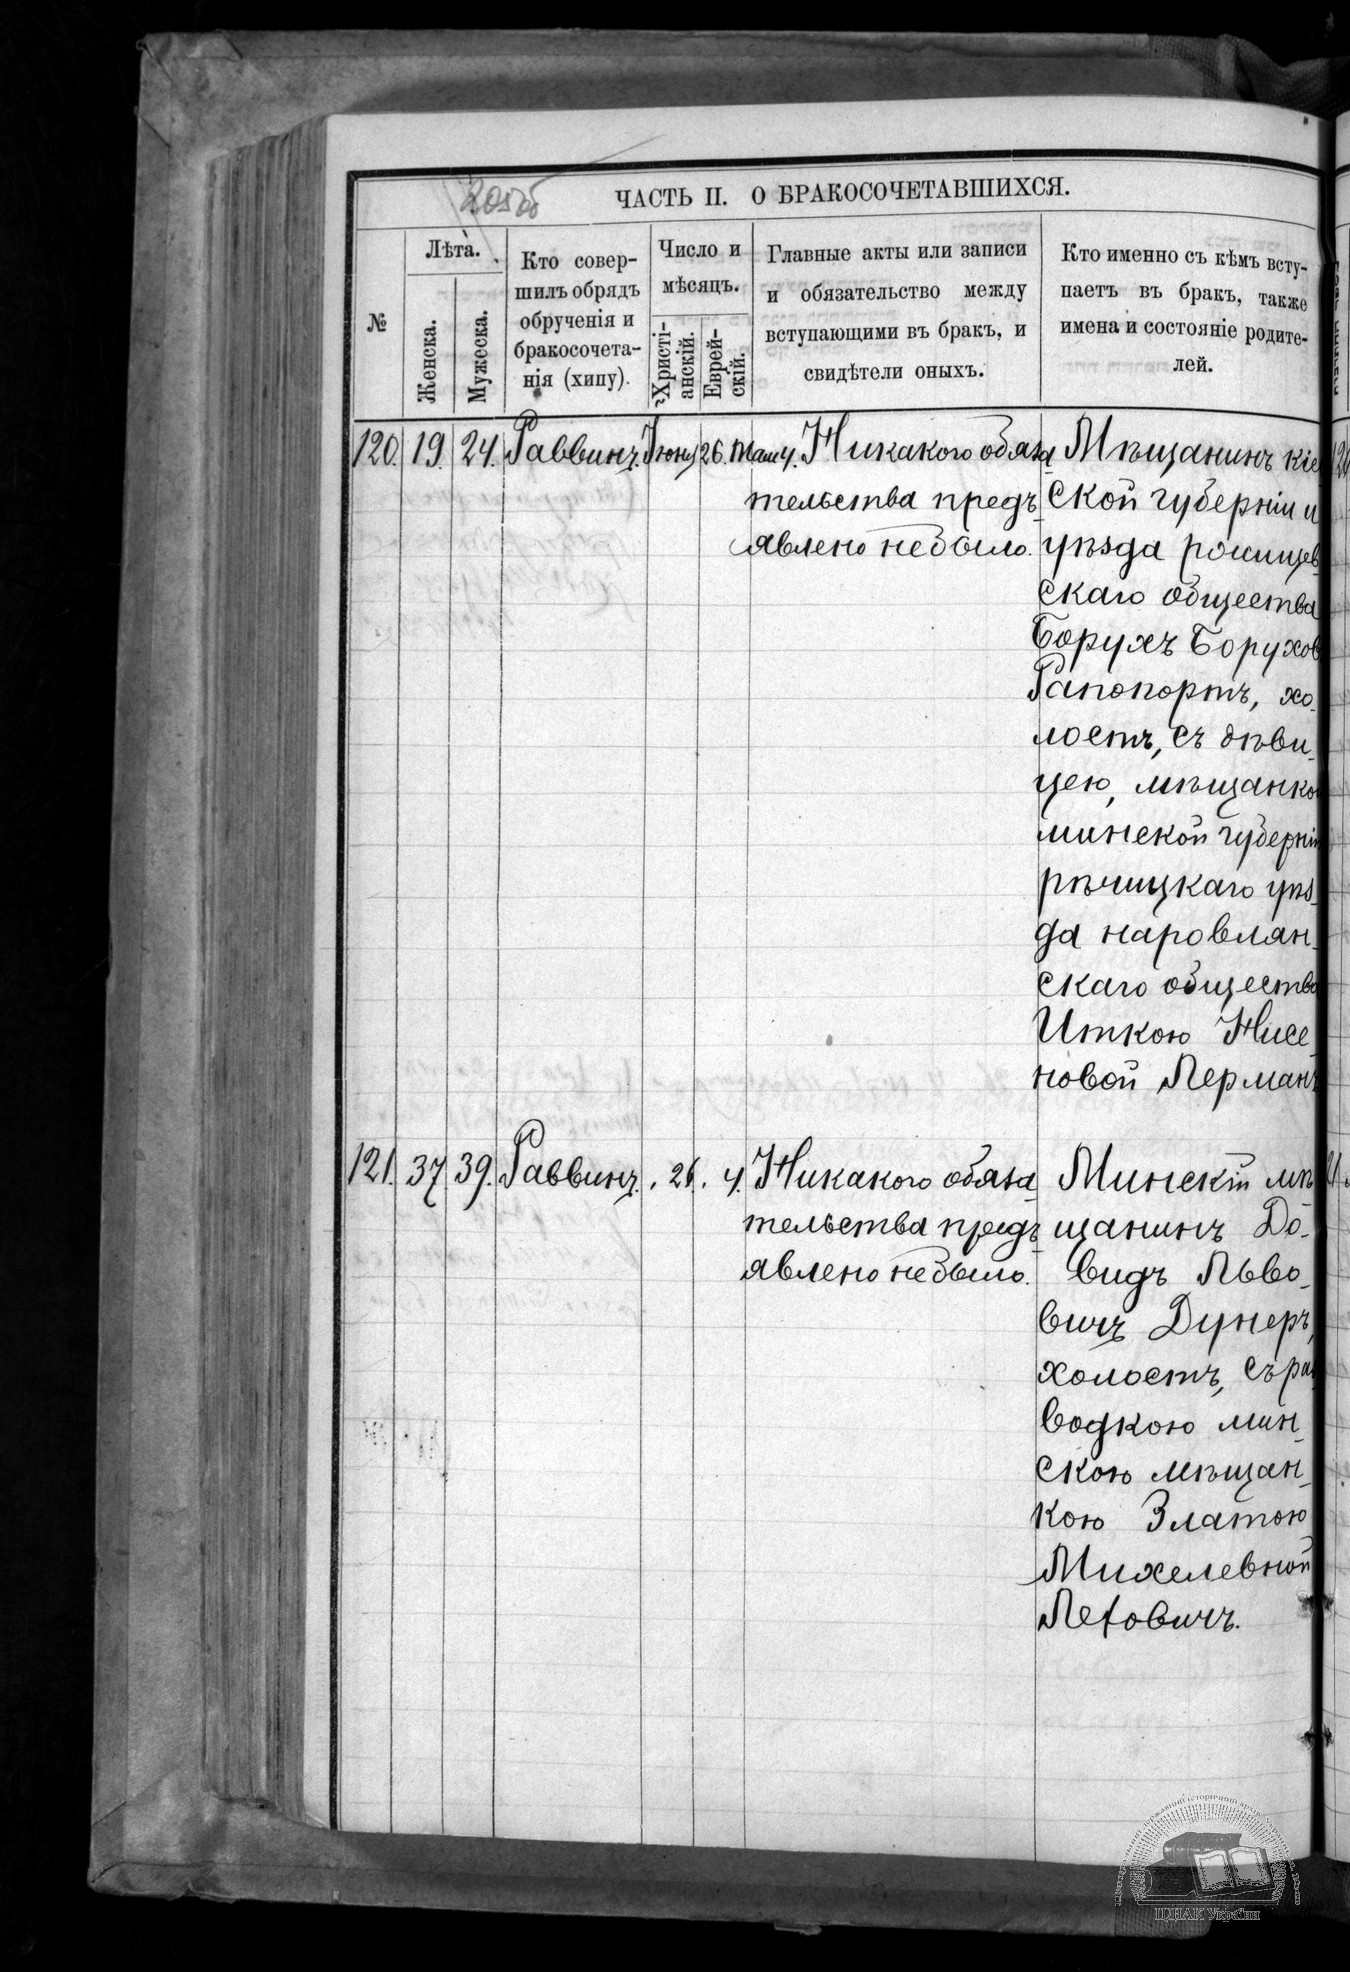 ЧАСТЬ II. О БРАКОСОЧЕТАВШИХСЯ.
№
Лѣта.
Женска.
Мужеска.
Кто совер-
шилъ обрядъ
обрученія и
бракосочета-
нія (хипу).
Число и
мѣсяцъ.
Христі-
анскій.
Еврей-
скій.
Главные акты или записи
и обязательство между
вступающими въ бракъ, и
свидѣтели оныхъ.
Кто именно съ кѣмъ всту-
паетъ въ бракъ, также
имена и состояніе родите-
лей.
120. 19. 24. Раввинъ. Іюня 26. Там. 4. Никакого обяза
тельства предъ-
явлено небыло.
Мѣщанинъ кіе
ской губерніи и
уѣзда
скаго общества
Борухъ Борухов
Рапопортъ, хо-
лостъ, съ дѣви-
цею, мѣщанко
минской губерніи
рѣчицкаго уѣз-
да наровлян-
скаго общества
Иткою Нисе-
новой Лерманъ
121. 37. 39. Раввинъ. 26. 4. Никакого обяза-
тельства предъ-
явлено небыло.
Минскій мѣ
щанинъ До-
видъ Льво-
вичъ Дунеръ,
холостъ, съ раз
водкою мин-
скою мѣщан-
кою Златою
Михелевной
Лефовичъ.
ЦДІАК України